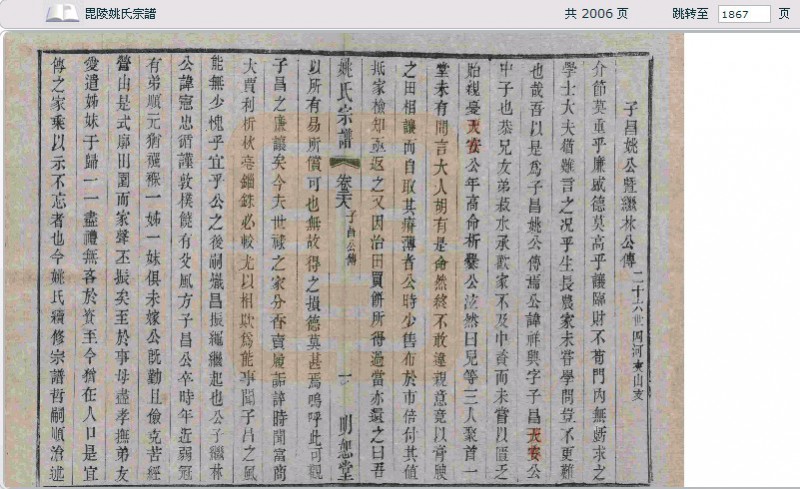 毘陵姚氏宗譜
共 2006 页
跳转至 1867 页
子昌姚公暨繼林公傳 二十六世四河東山支
介節莫重乎廉威德莫高乎讓臨財不苟門內無虧求之
學士大夫猶難言之况乎生長農家未甞學問豈不更難
也哉吾以是爲子昌姚公傳焉公諱祥興字子昌天安公
中子也恭兄友弟菽水承歡家不及中資而未嘗以匱乏
貽親憂天安公年高命析爨公泫然曰兄等三人聚首一
堂未有間言大人胡有是命然終不敢違親意竟以膏腴
之田相讓而自取其瘠薄者公時少售布於市倍付其值
抵家檢知亟返之又因治田買餅所得過當亦還之曰吾
姚氏宗譜 卷六 子昌公傳 一 明恕堂
以所有易所償可也無故得之損德莫甚焉嗚呼此可觀
子昌之廉讓矣今夫世祿之家分香賣履詬誶時聞富商
大賈利析秋毫錙銖必較尤以相欺爲能事聞子昌之風
能無少愧乎宜乎公之後嗣熾昌振繩繼起也公子繼林
公諱憲忠術謹敦樸饒有父風方子昌公卒時年近弱冠
有弟順元猶襁褓一姊一妹俱未嫁公既勤且儉克苦經
營由是式廓田園而家聲丕振矣至於事母盡孝撫弟友
愛遣姊妹于歸一一盡禮無吝於資至今猶在人口是宜
傳之家乘以示不忘者也今姚氏續修宗譜哲嗣順滄述